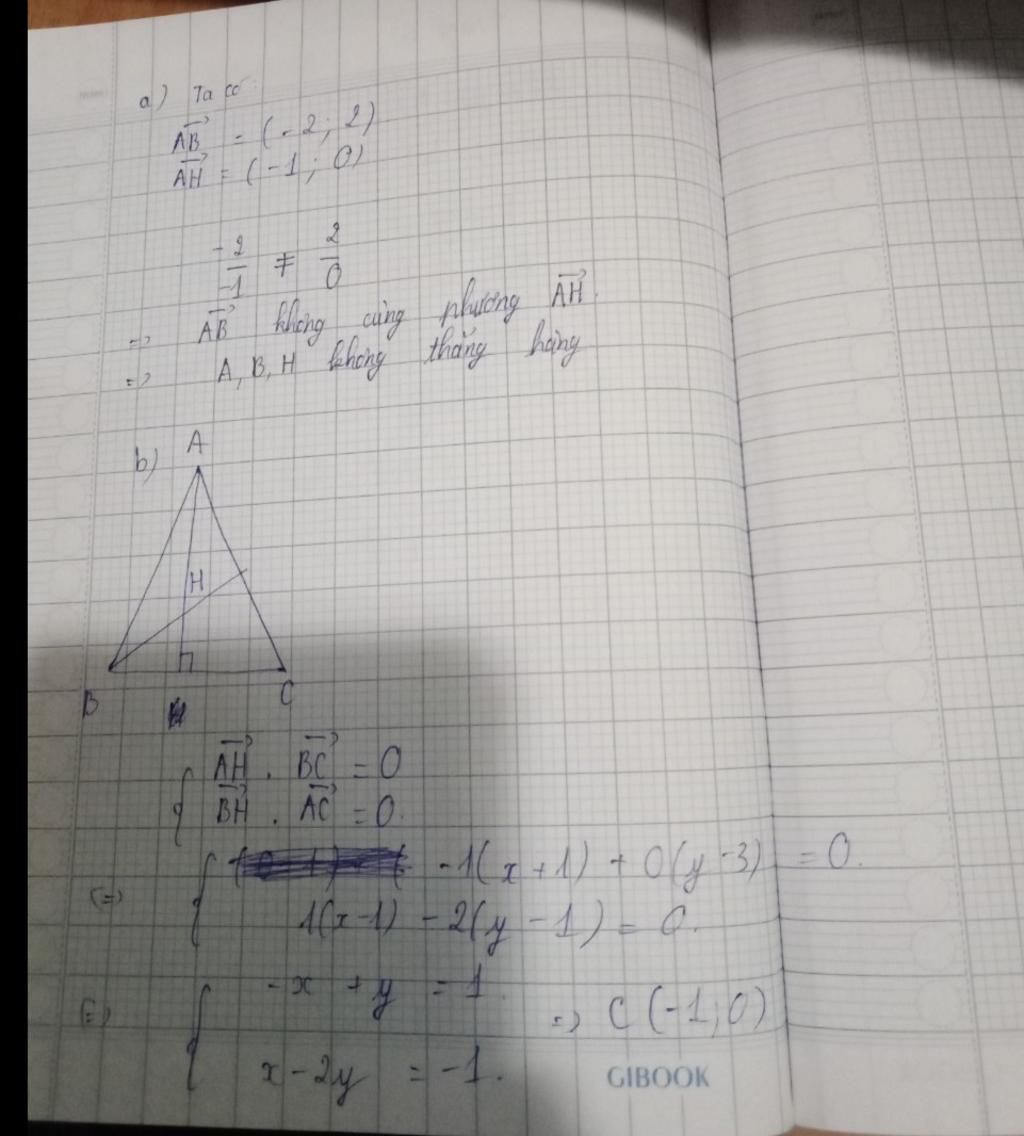 a) Ta có:
AB→ = (-2; 2)
AH→ = (-1; 0)
-2/-1 ≠ 2/0
=> AB→ không cùng phương AH→.
=> A, B, H không thẳng hàng
b)
A
H
B
C
{ AH→ . BC→ = 0
BH→ . AC→ = 0.
(=) { -1(x+1) + 0(y-3) = 0.
1(x-1) - 2(y-1) = 0.
(=) { -x + y = 1.
=> C(-1; 0)
x - 2y = -1.
GIBOOK